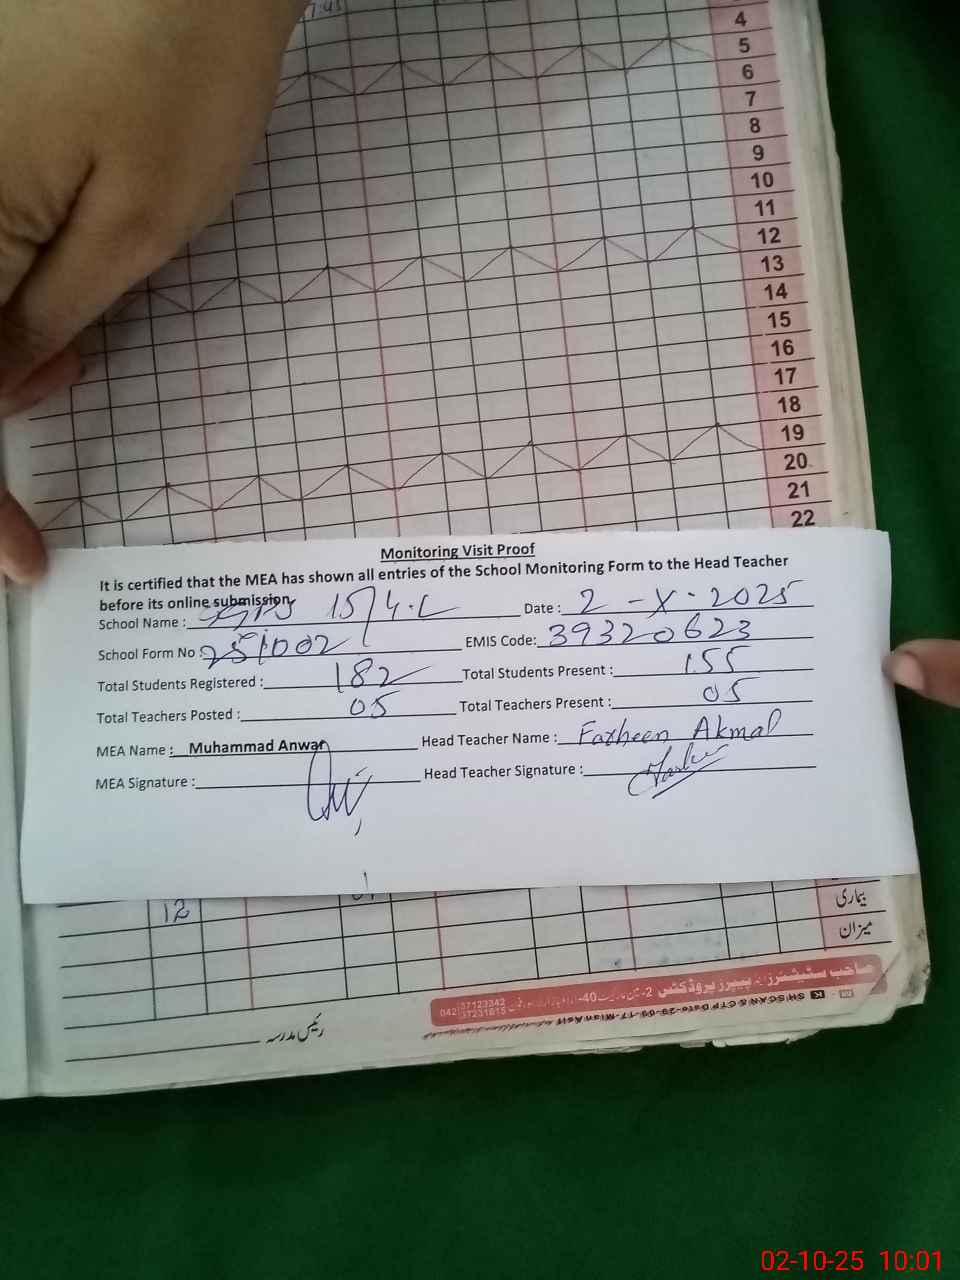 4
5
6
7
8
9
10
11
12
13
14
15
16
17
18
19
20
21
22
Monitoring Visit Proof
It is certified that the MEA has shown all entries of the School Monitoring Form to the Head Teacher
before its online submission.
School Name : 15/4.L Date : 2 - X - 2025
School Form No 251002 EMIS Code: 39320623
Total Students Registered : 182 Total Students Present : 155
Total Teachers Posted : 05 Total Teachers Present : 05
MEA Name : Muhammad Anwar Head Teacher Name : Farheen Akmal
MEA Signature : Head Teacher Signature :
12
بیماری
میزان
صاحب سٹیشنرز اینڈ پیپرز پروڈکٹس
042 37123342
37231815
رئیس مدرسہ
02-10-25 10:01